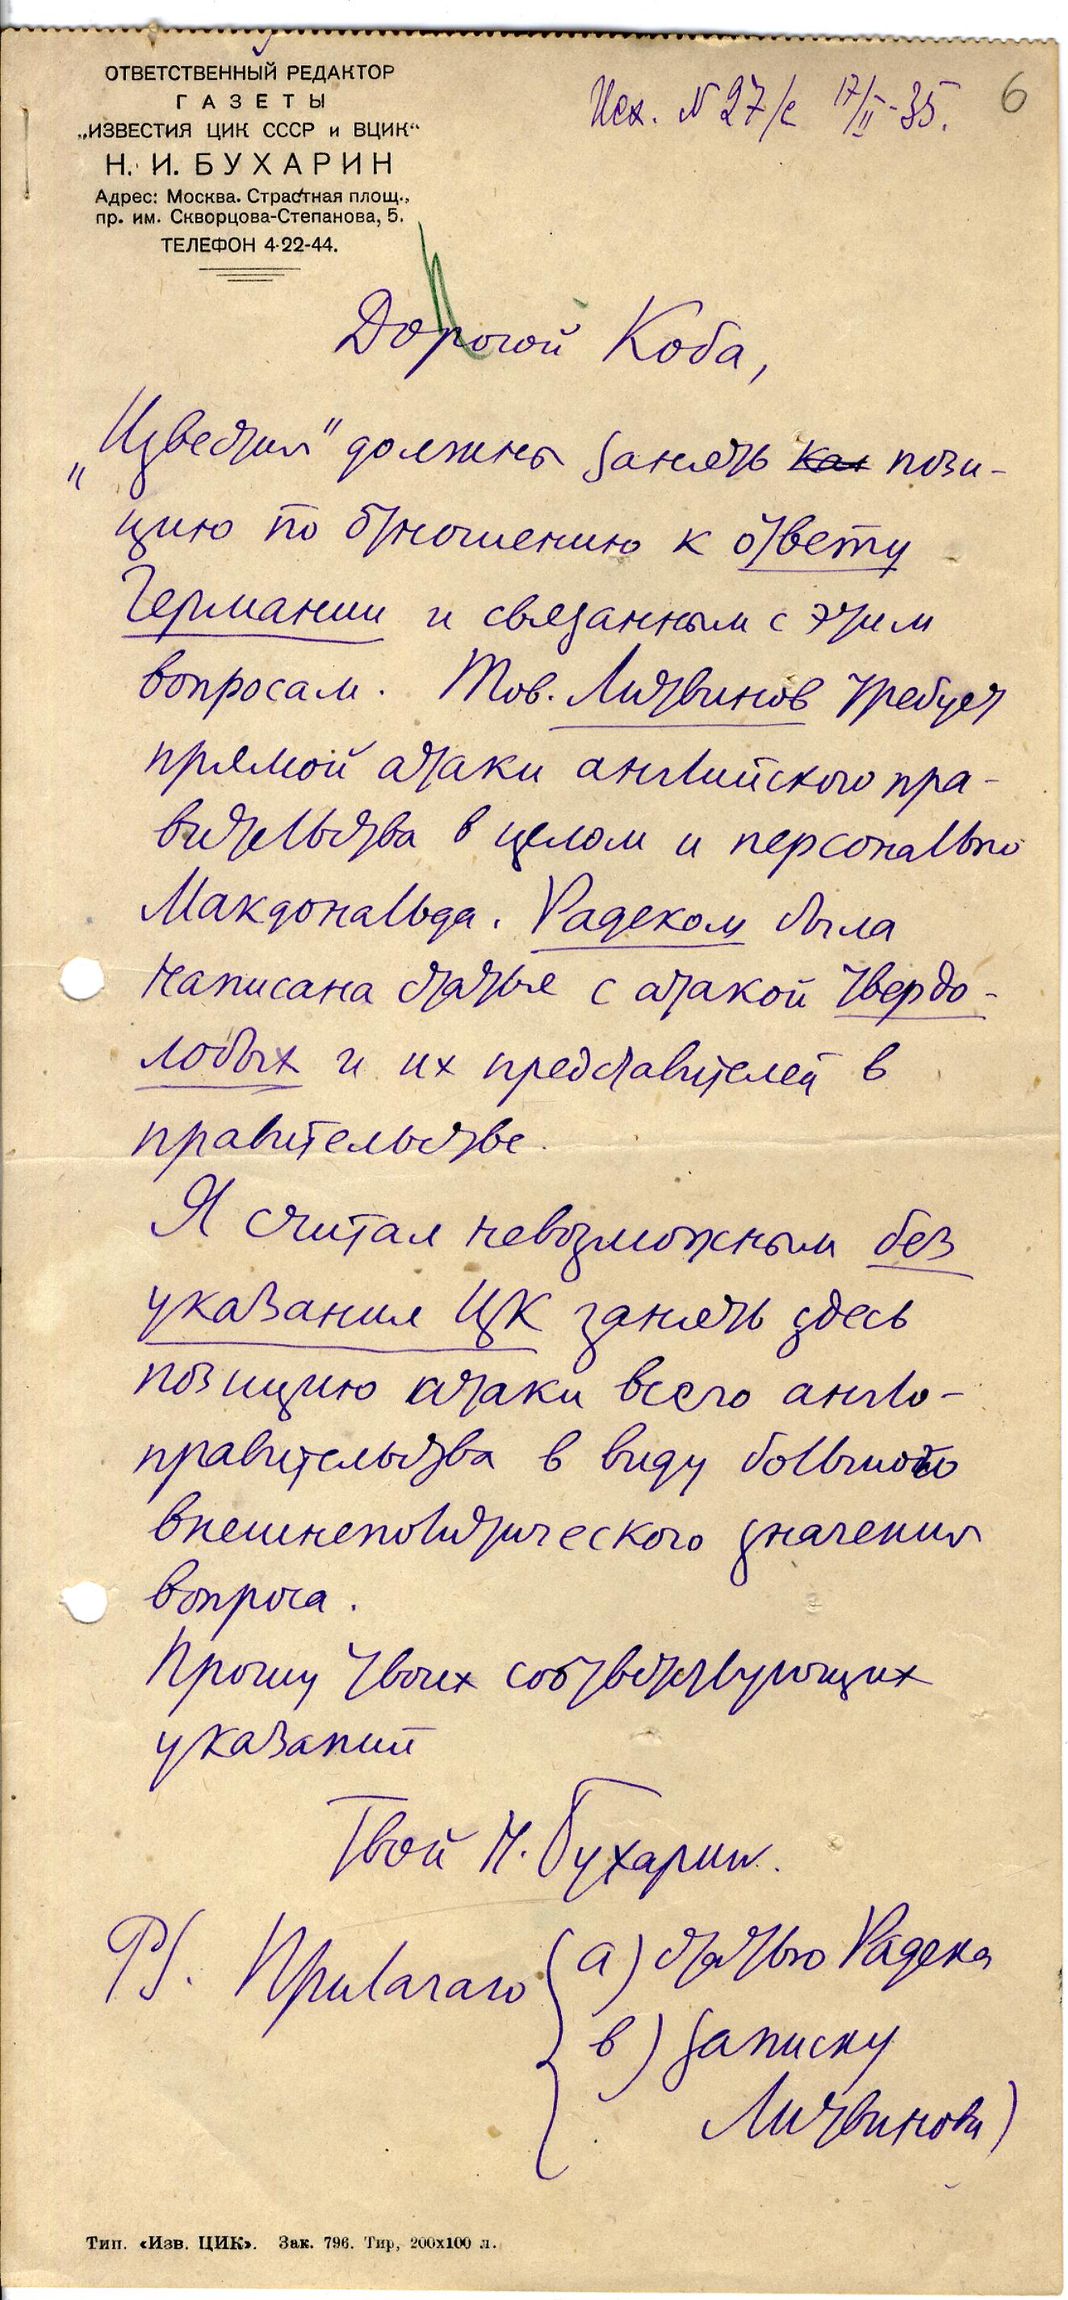 ОТВЕТСТВЕННЫЙ РЕДАКТОР
ГАЗЕТЫ
„ИЗВЕСТИЯ ЦИК СССР и ВЦИК“
Н. И. БУХАРИН
Адрес: Москва. Страстная площ.,
пр. им. Скворцова-Степанова, 5.
ТЕЛЕФОН 4-22-44.
Исх. N 27/с 17/II-35.
6
Дорогой Коба,
„Известия" должны занять как пози-
цию по отношению к ответу
Германии и связанным с этим
вопросам. Тов. Литвинов требует
прямой атаки английского пра-
вительства в целом и персонально
Макдональда. Радеком была
написана статья с атакой твердо-
лобых и их представителей в
правительстве.
Я считал невозможным без
указания ЦК занять здесь
позицию атаки всего англо-
правительства в виду большого
внешнеполитического значения
вопроса.
Прошу твоих соответствующих
указаний
Твой Н. Бухарин.
PS. Прилагаю (а) статью Радека
в) записку
Литвинова)
Тип. «Изв. ЦИК». Зак. 796. Тир, 200х100 л.